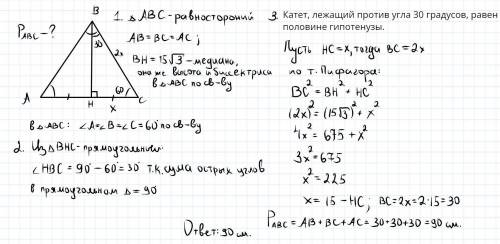 P_ABC - ?
B
30
2x
60
A
H
x
C
1. Δ ABC - равносторонний
AB = BC = AC ;
BH = 15√3 - медиана,
она же высота и биссектриса
в Δ ABC по св-ву
в Δ ABC: ∠A=∠B=∠C=60° по св-ву
2. Из Δ BHC - прямоугольный:
∠HBC = 90° - 60° = 30° т.к. сума острых углов
в прямоугольном Δ = 90°
3. Катет, лежащий против угла 30 градусов, равен
половине гипотенузы.
Пусть HC = x, тогда BC = 2x
по т. Пифагора:
BC² = BH² + HC²
(2x)² = (15√3)² + x²
4x² = 675 + x²
3x² = 675
x² = 225
x = 15 - HC ; BC = 2x = 2·15 = 30
P_ABC = AB + BC + AC = 30+30+30 = 90 см.
Ответ: 90 см.